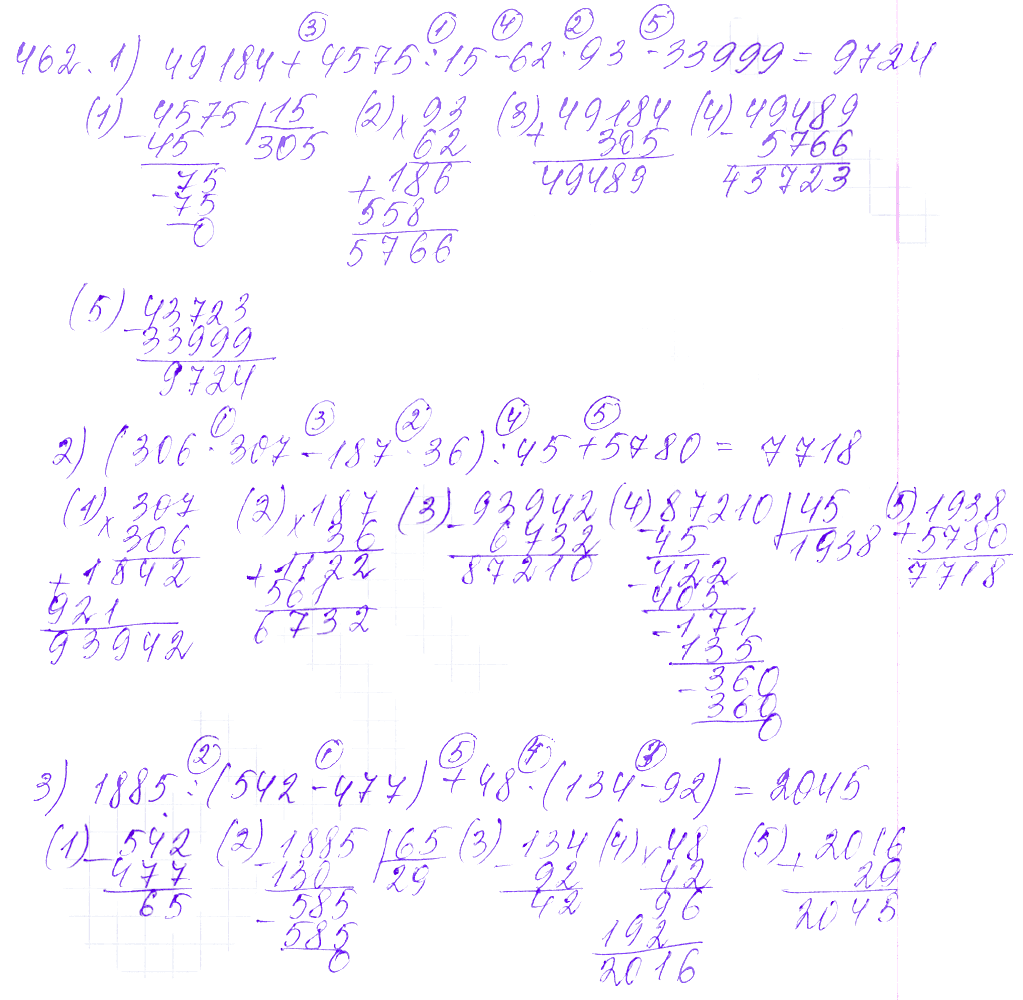 462. 1) 49184 + 4575 : 15 - 62 · 93 - 33999 = 9724
③ ① ④ ② ⑤
(1) 4575 | 15 (2) × 93 (3) + 49184 (4) - 49489
- 45 305 62 305 5766
- 75 + 186 49489 43723
75 558
0 5766
(5) - 43723
33999
9724
① ③ ② ④ ⑤
2) (306 · 307 - 187 · 36) : 45 + 5780 = 7718
(1) × 307 (2) × 187 (3) - 93942 (4) - 87210 | 45 (5) + 1938
306 36 6732 45 1938 5780
+ 1842 + 1122 87210 - 422 7718
921 561 405
93942 6732 - 171
135
- 360
360
0
② ① ⑤ ④ ③
3) 1885 : (542 - 477) + 48 · (134 - 92) = 2045
(1) - 542 (2) - 1885 | 65 (3) - 134 (4) × 48 (5) + 2016
477 130 29 92 42 29
65 - 585 42 96 2045
585 192
0 2016